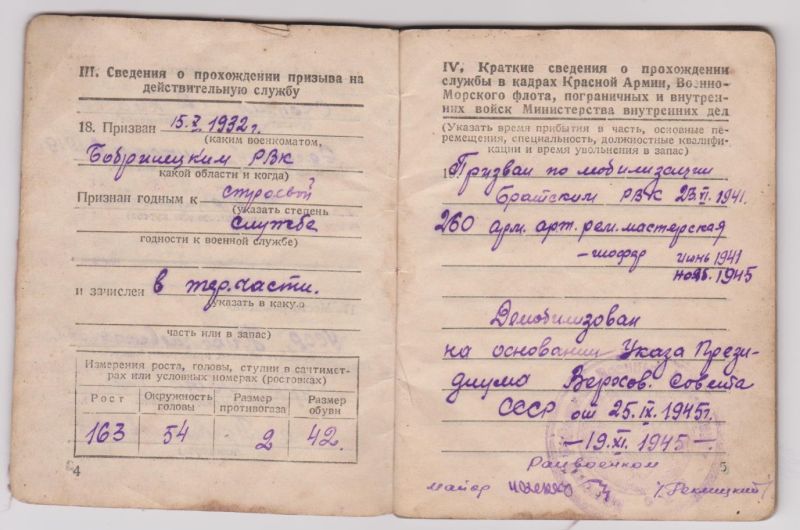 III. Сведения о прохождении призыва на
действительную службу
18. Призван 15.X 1932 г.
(каким военкоматом,
Бобринецким РВК
какой области и когда)
Признан годным к строевой
(указать степень
службе
годности к военной службе)
и зачислен в тер.части.
(указать в какую
часть или в запас)
Измерения роста, головы, ступни в сантимет-
рах или условных номерах (ростовках)
Рост Окружность головы Размер противогаза Размер обуви
163 54 2 42.
4
IV. Краткие сведения о прохождении
службы в кадрах Красной Армии, Военно-
Морского флота, пограничных и внутрен-
них войск Министерства внутренних дел
(Указать время прибытия в часть, основные пе-
ремещения, специальность, должностные квалифи-
кации и время увольнения в запас)
Призван по мобилизации
Братским РВК 23.VI.1941.
260 арм. арт. рем. мастерская
– шофер июнь 1941
нояб. 1945
Демобилизован
на основании Указа Прези-
диума Верхов. Совета
СССР от 25.IX.1945г.
– 19.XI.1945 –
Райвоенком
майор
5